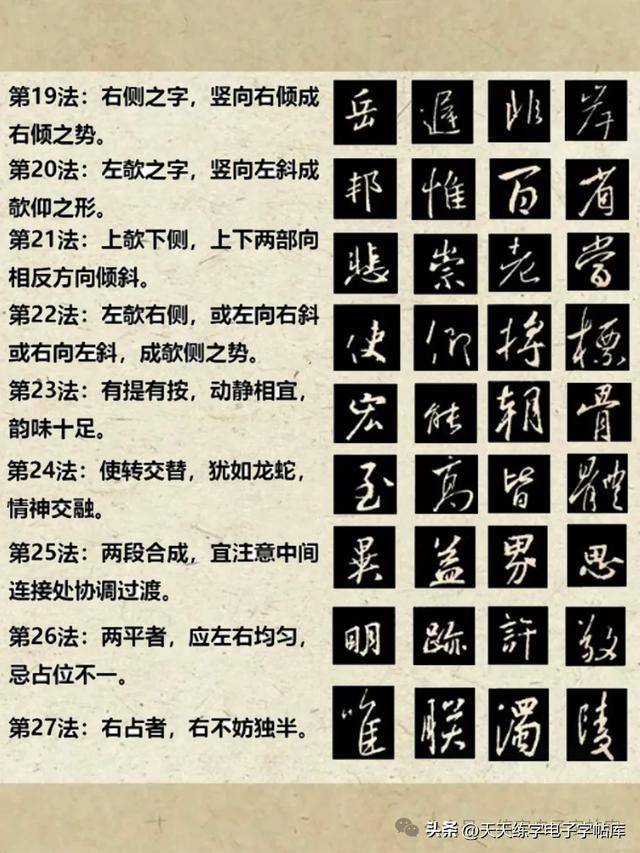 第19法：右侧之字，竖向右倾成 岳 遲 非 岸
右倾之势。
第20法：左欹之字，竖向左斜成 邦 惟 百 省
欹仰之形。
第21法：上欹下侧，上下两部向 悲 崇 老 當
相反方向倾斜。
第22法：左欹右侧，或左向右斜 使 仰 将 標
或右向左斜，成欹侧之势。
第23法：有提有按，动静相宜， 宏 能 朝 骨
韵味十足。
第24法：使转交替，犹如龙蛇， 至 高 皆 體
情神交融。
第25法：两段合成，宜注意中间 異 益 界 思
连接处协调过渡。
第26法：两平者，应左右均匀， 明 跡 許 敬
忌占位不一。
第27法：右占者，右不妨独半。 唯 联 濁 陵
头条 @天天练字电子字帖库